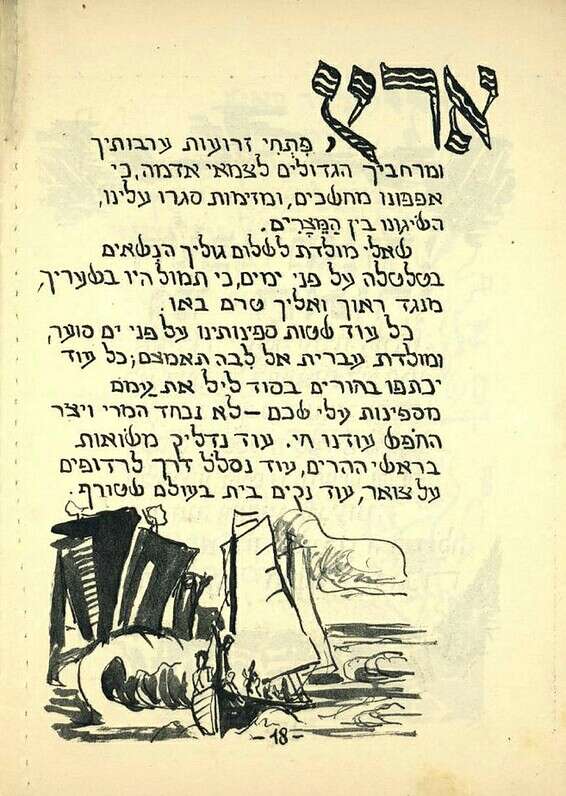 ארץ
, פתחי זרועות ערבותיך
ומרחביך הגדולים לצמאי אדמה, כי
אפפונו מחשכים, ומזימות סגרו עלינו,
השיגונו בין הַמְּצָרִים.
שאלי מולדת לשלום גוליך הנישאים
בטלטלה על פני ימים, כי תמול היו בשעריך,
מנגד ראוך ואליך טרם באו.
כל עוד שטות ספינותינו על פני ים סוער,
ומולדת עברית אל לבה תאמצם; כל עוד
יכתפו בחורים בסוד ליל את עמם
מספינות עלי שכם – לא נכחד המרי ויצר
החופש עודנו חי. עוד נדליק משואות
בראשי ההרים, עוד נסלול דרך לרדופים
על צואר, עוד נקים בית בעולם שטורף.
-18-